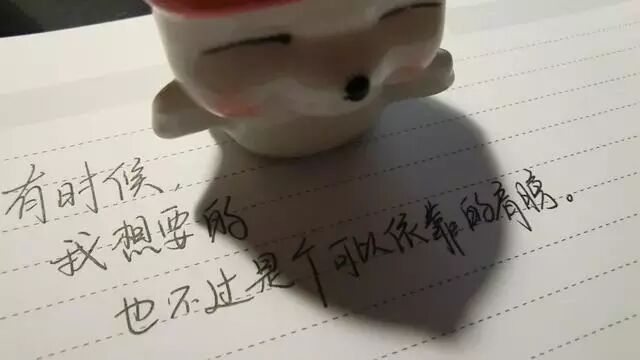 有时候，
我想要的
也不过是个可以依靠的肩膀。